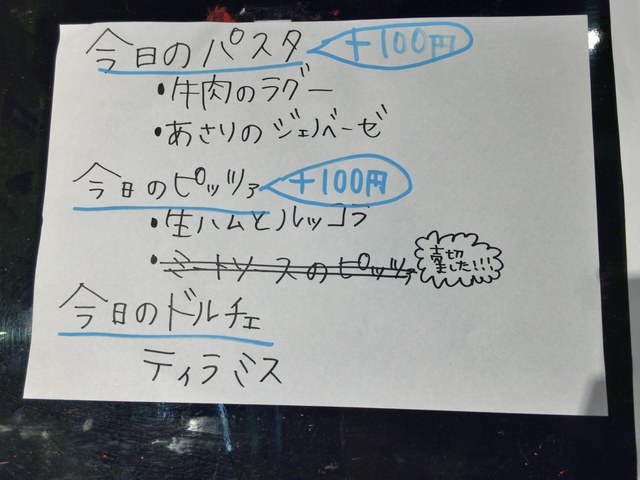 今日のパスタ +100円
・牛肉のラグー
・あさりのジェノベーゼ
今日のピッツァ +100円
・生ハムとルッコラ
・ミートソースのピッツァ
売切
ました!!!
今日のドルチェ
ティラミス